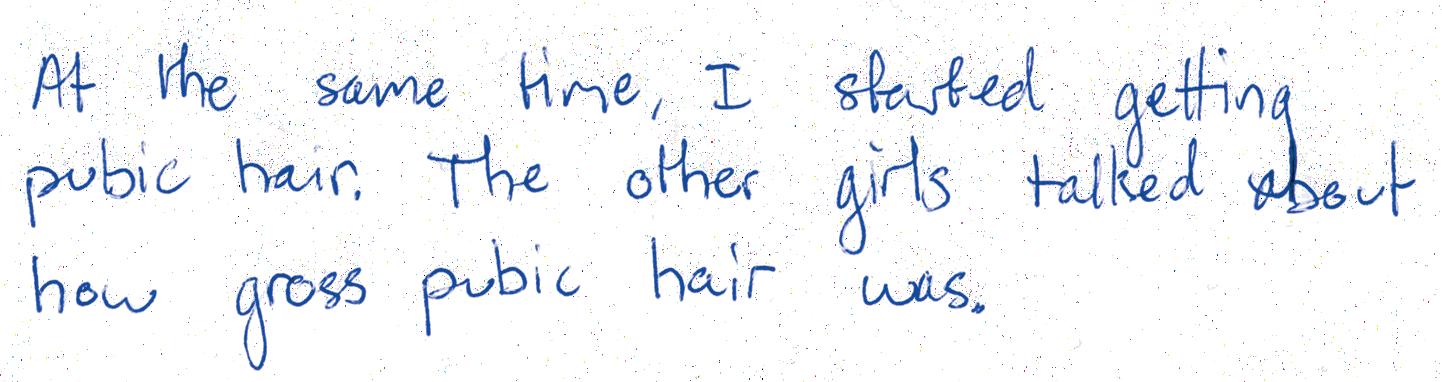 At the same time, I started getting
pubic hair. The other girls talked about
how gross pubic hair was.